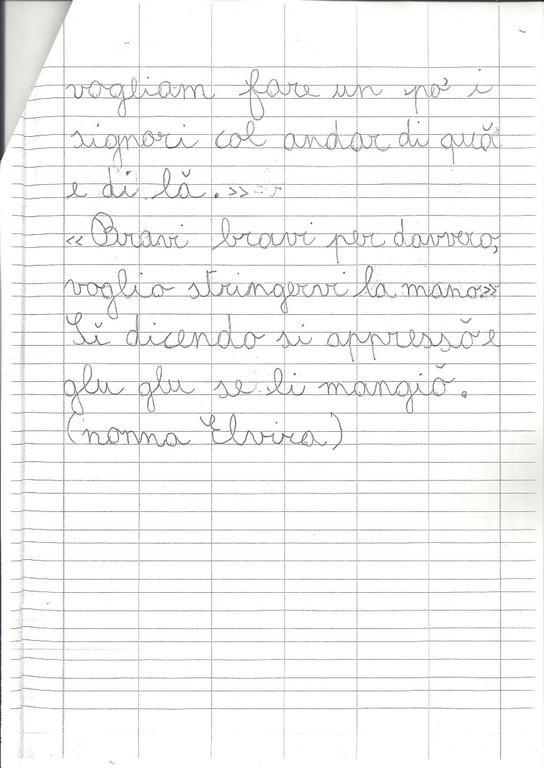 vogliam fare un po' i
signori col andar di quă
e di lă.»
«Bravi bravi per davvero,
voglio stringervi la mano»
Sĭ dicendo si appressŏ e
glu glu se li mangiŏ.
(nonna Elvira)